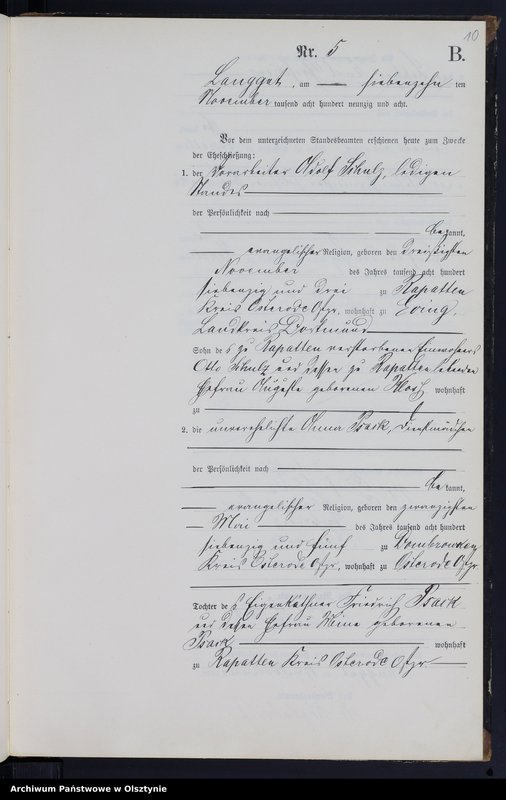 10
Nr. 5
B.
Langgut, am — siebenzehn ten
November tausend acht hundert neunzig und acht.
Vor dem unterzeichneten Standesbeamten erschienen heute zum Zwecke
der Eheschließung:
1. der Vorarbeiter Adolf Schulz, ledigen
Standes
der Persönlichkeit nach
bekannt,
evangelischer Religion, geboren den dreißigsten
November des Jahres tausend acht hundert
siebenzig und drei zu Rapatten
Kreis Osterode Ostpr, wohnhaft zu Eving,
Landkreis Dortmund
Sohn des zu Rapatten verstorbenen Einwohners
Otto Schulz und dessen zu Rapatten lebenden
Ehefrau Auguste geborenen wohnhaft
zu
2. die unverehelichte Anna Psack, Dienstmädchen
der Persönlichkeit nach
bekannt,
evangelischer Religion, geboren den zwanzigsten
Mai des Jahres tausend acht hundert
siebenzig und fünf zu Dombrowken
Kreis Osterode Ostpr, wohnhaft zu Osterode Ostpr
Tochter des Eigenkäthner Friedrich Psack
und dessen Ehefrau Mine geborenen
Psack wohnhaft
zu Rapatten Kreis Osterode Ostpr
Archiwum Państwowe w Olsztynie